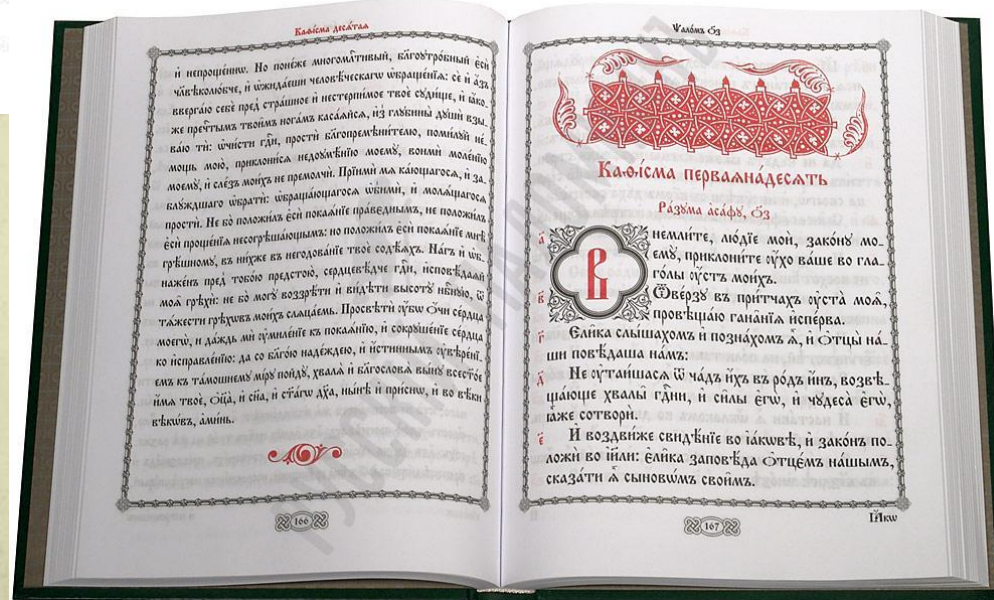 Каѳі́сма деся́тая
и҆ непроще́ннѡ. Но поне́же многомл҃тивый, бл҃гоутро́бный є҆сѝ
чл҃вѣколю́бче, и҆ ѡ҆жида́еши человѣ́ческагѡ ѡ҆браще́нїѧ: сѐ и҆ а҆́зъ
вверга́ю себѐ пред̾ стра́шное и҆ нестерпи́мое твоѐ суди́ще, и҆ ꙗ҆́ко-
же пречⷭ҇тымъ твои̑мъ нога́мъ каса́ѧйсѧ, и҆з̾ глубины̀ дꙋшѝ взы-
ва́ю тѝ: ѡ҆чи́сти гдⷭ҇и, простѝ бл҃гопремѣни́телю, поми́луй не́-
мощь мою̀, приклони́сѧ недоумѣ́нїю моемꙋ̀, вонмѝ моле́нїю
моемꙋ̀, и҆ сле́зъ мои́хъ не премолчѝ. Прїимѝ мѧ̀ ка́ющагосѧ, и҆ за-
блꙋ́ждшаго ѡ҆братѝ: ѡ҆браща́ющагосѧ ѡ҆бимѝ, и҆ молѧ́щагосѧ
простѝ. Не бо̀ положи́лъ є҆сѝ покаѧ́нїе пра́веднымъ, не положи́лъ
є҆сѝ проще́нїѧ несогрѣша́ющымъ: но положи́лъ є҆сѝ покаѧ́нїе мнѣ̀
грѣ́шномꙋ, въ ни́хже въ негодова́нїе твоѐ содѣ́ѧхъ. На́гъ и҆ ѡ҆б-
наже́нъ пред̾ тобо́ю предстою̀, сердцевѣ́дче гдⷭ҇и, и҆сповѣ́даѧй
моѧ̑ грѣхѝ: не бо̀ могꙋ̀ воззрѣ́ти и҆ ви́дѣти высотꙋ̀ нб҃нꙋю, ѿ
тѧ́жести грѣхѡ́въ мои́хъ слѧца́емь. Просвѣтѝ ᲂу҆̀бѡ ѻ҆́чи се́рдца
моегѡ̀, и҆ да́ждь мѝ ᲂу҆миле́нїе къ покаѧ́нїю, и҆ сокрꙋше́нїе се́рдца
ко и҆справле́нїю: да со бл҃го́ю наде́ждею, и҆ и҆́стиннымъ ᲂу҆вѣре́нї-
емъ къ та́мошнемꙋ мі́рꙋ пойдꙋ̀, хвалѧ̀ и҆ бл҃гословѧ̀ вы́нꙋ всест҃о́е
и҆́мѧ твоѐ, ѻ҆ц҃а̀, и҆ сн҃а, и҆ ст҃а́гѡ дх҃а, ны́нѣ и҆ при́снѡ, и҆ во вѣ́ки
вѣкѡ́въ, а҆ми́нь.
166
Ѱало́мъ ѻ҃з
Каѳі́сма перваѧна́десѧть
Ра́зума а҆са́фꙋ, ѻ҃з
а҃ Внемли́те, лю́дїе моѝ, зако́нꙋ мо-
емꙋ̀, приклони́те ᲂу҆́хо ва́ше во гла-
го́лы ᲂу҆́стъ мои́хъ.
в҃ Ѿве́рзꙋ въ при́тчахъ ᲂу҆ста̀ моѧ̑,
провѣща́ю гана̑нїѧ и҆спе́рва.
г҃ Є҆ли̑ка слы́шахомъ и҆ позна́хомъ ѧ҆̀, и҆ ѻ҆тцы̀ на́-
ши повѣ́даша на́мъ:
д҃ Не ᲂу҆таи́шасѧ ѿ ча̑дъ и҆́хъ въ ро́дъ и҆́нъ, возвѣ-
ща́юще хвалы̑ гдⷭ҇ни, и҆ си̑лы є҆гѡ̀, и҆ чꙋдеса̀ є҆гѡ̀,
ꙗ҆̀же сотворѝ.
є҃ И҆ воздви́же свидѣ́нїе во і҆а́кѡвѣ, и҆ зако́нъ по-
ложѝ во і҆и҃ли: є҆ли̑ка заповѣ́да ѻ҆тцє́мъ на́шымъ,
сказа́ти ѧ҆̀ сыновѡ́мъ свои̑мъ.
167